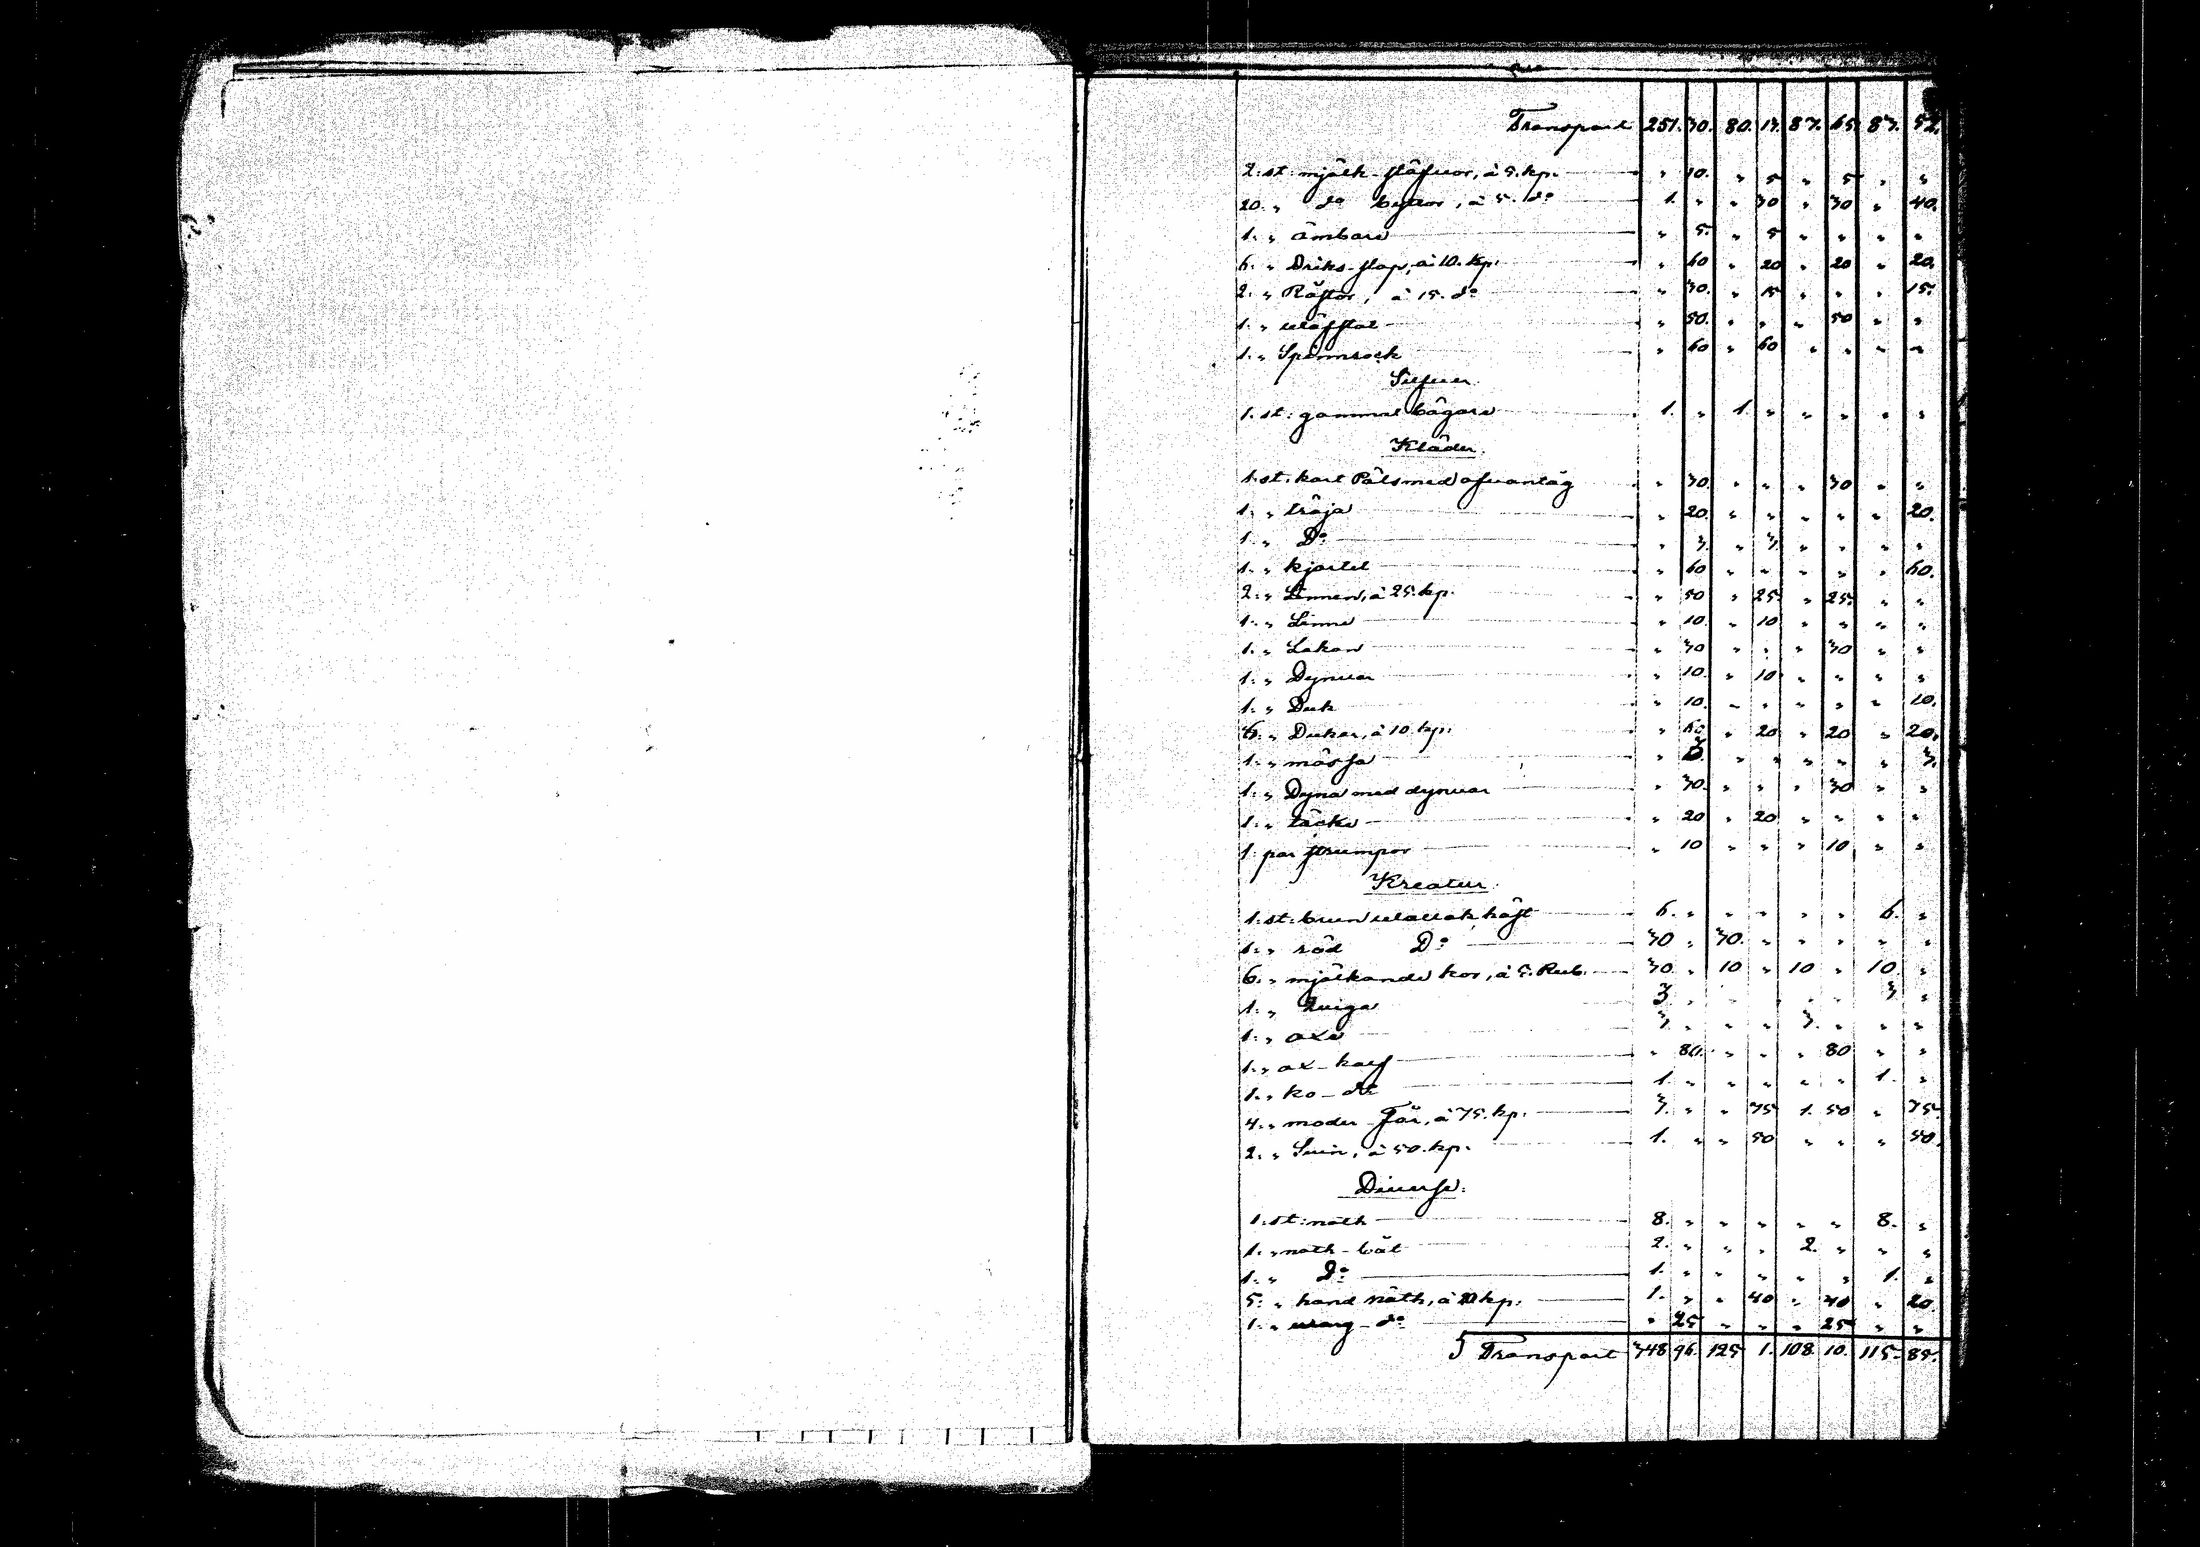 Transport 251. 30. 80. 13. 87. 65. 83. 52.
2. st: mjölk-stäfvor, à 5. kp. " 10. " 5 " 5 " "
20. " do byttor, à 5. do 1. " " 30 " 30 " 40.
1. " ämbare " 5. " 5 " " " "
6. " Driks-stop, à 10. kp. " 60 " 20 " 20 " 20.
2. " Råstor, à 15. do " 30. " 15 " " " 15.
1. " väfstol " 50. " " " 50 " "
1. " Spinnrock " 60 " 60 " " " "
Silfver.
1. st: gammal bägare 1. " 1. " " " " "
Kläder.
1. st: kort Päls med ofvantåg " 30. " " " 30 " "
1. " tröja " 20. " " " " " 20.
1. " Do " 3. " 3. " " " "
1. " kjortel " 60 " " " " " 60.
2. " Linnen, à 25. kp. " 50 " 25 " 25. " "
1. " Linne " 10. " 10 " " " "
1. " Lakan " 30 " " " 30 " "
1. " Dynvar " 10. " 10 " " " "
1. " Duk " 10. " " " " " 10.
6. " Dukar, à 10. kp. " 60 " 20 " 20 " 20.
1. " mössa " 3. " " " " " 3.
1. " Dyna med dynvar " 30. " " " 30 " "
1. " täcke " 20 " 20 " " " "
1. par strumpor " 10 " " " 10 " "
Kreatur.
1. st: brun vallak häst 6. " " " " " 6. "
1. " röd Do 30 " 30. " " " " "
6. " mjölkande kor, à 5. Rub. 30 " 10 " 10 " 10 "
1. " qviga 3 " " " " " 3 "
1. " oxe 3. " " " 3. " " "
1. " ox-kalf " 80. " " " 80 " "
1. " ko-do 1. " " " " " 1. "
4. " moder Får, à 75. kp. 3. " " 75 1. 50 " 75
2. " Svin, à 50. kp. 1. " " 50 " " " 50.
Diverse.
1. st: noth 8. " " " " " 8. "
1. " noth-båt 2. " " " 2. " " "
1. " Do 1. " " " " " 1. "
5. " hand näth, à 20 kp. 1. " " 40 " 40 " 20.
1. " do " 25 " " " 25 " "
Transport 348 96. 125 1. 108. 10. 115. 85.